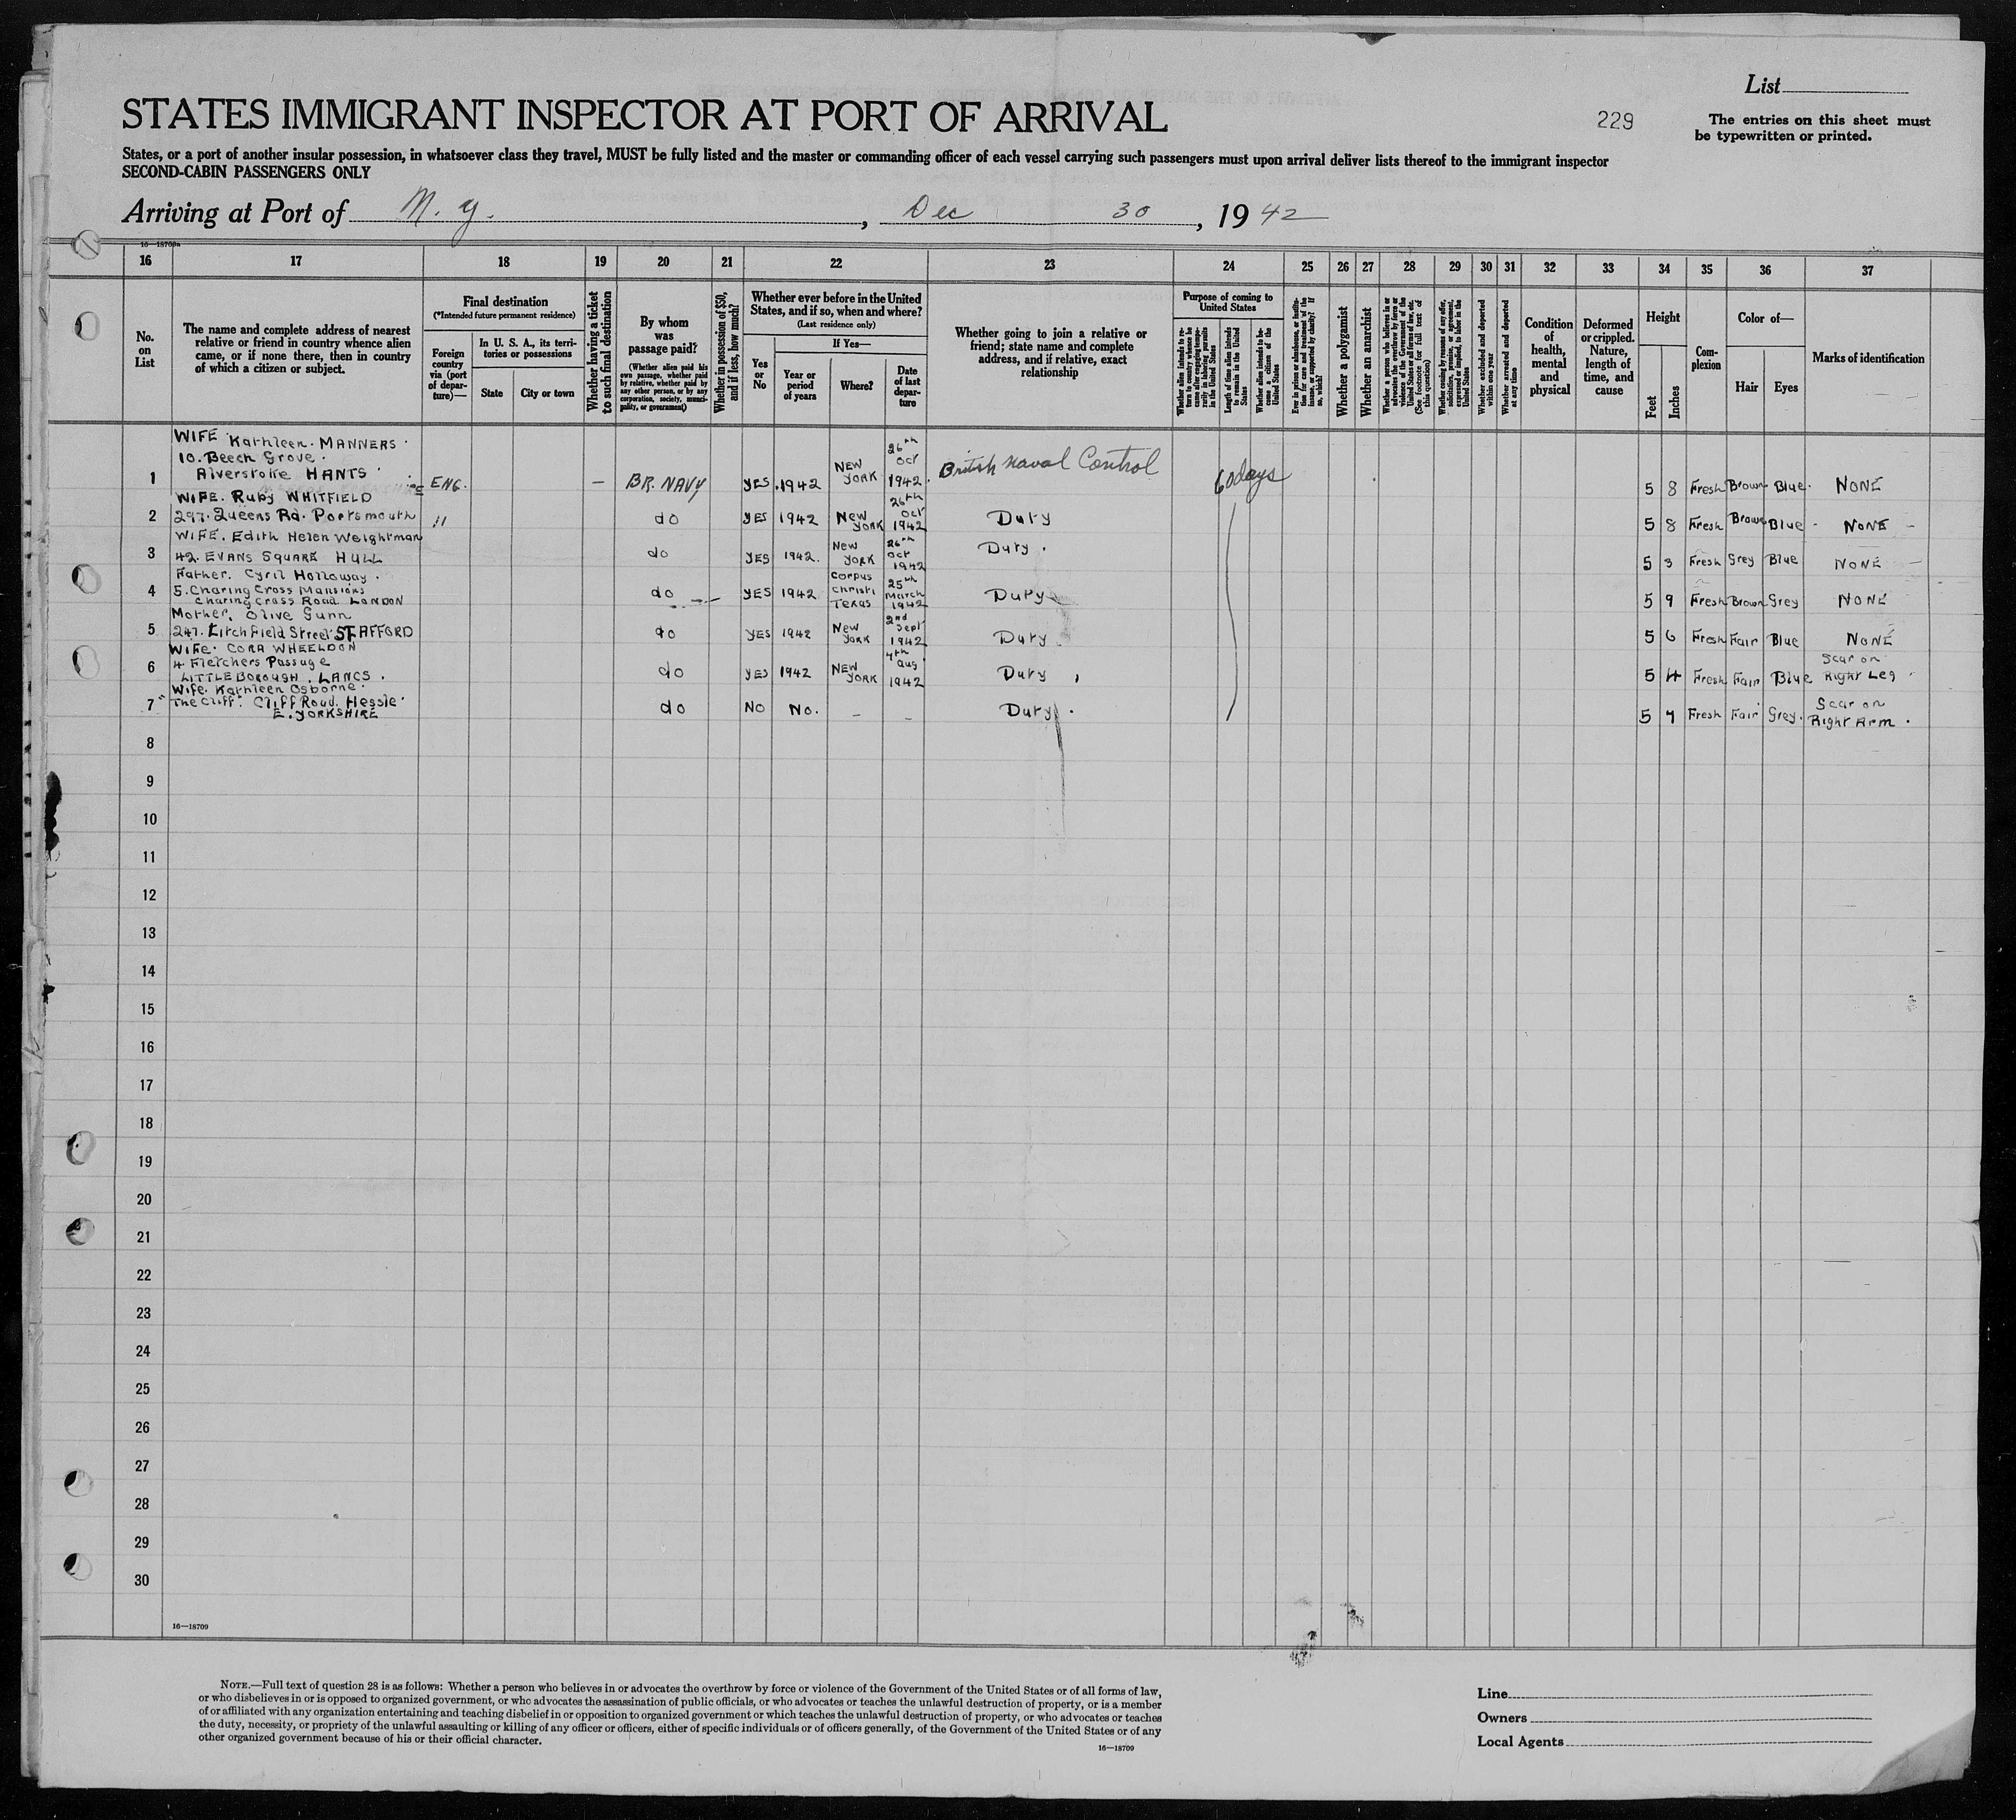 List
STATES IMMIGRANT INSPECTOR AT PORT OF ARRIVAL
229
The entries on this sheet must
be typewritten or printed.
States, or a port of another insular possession, in whatsoever class they travel, MUST be fully listed and the master or commanding officer of each vessel carrying such passengers must upon arrival deliver lists thereof to the immigrant inspector
SECOND-CABIN PASSENGERS ONLY
Arriving at Port of N. Y. , Dec 30 , 1942
16—18709a
16 17 18 19 20 21 22 23 24 25 26 27 28 29 30 31 32 33 34 35 36 37
No. on List
The name and complete address of nearest relative or friend in country whence alien came, or if none there, then in country of which a citizen or subject.
Final destination
(*Intended future permanent residence)
Foreign country via (port of departure)—
In U. S. A., its territories or possessions
State
City or town
Whether having a ticket to such final destination
By whom was passage paid?
(Whether alien paid his own passage, whether paid by relative, whether paid by any other person, or by any corporation, society, municipality, or government)
Whether in possession of $50, and if less, how much?
Whether ever before in the United States, and if so, when and where?
(Last residence only)
Yes or No
If Yes—
Year or period of years
Where?
Date of last departure
Whether going to join a relative or friend; state name and complete address, and if relative, exact relationship
Purpose of coming to United States
Whether alien intends to return to country whence he came after engaging temporarily in laboring pursuits in the United States
Length of time alien intends to remain in the United States
Whether alien intends to become a citizen of the United States
Ever in prison or almshouse, or institution for care and treatment of the insane, or supported by charity? If so, which?
Whether a polygamist
Whether an anarchist
Whether a person who believes in or advocates the overthrow by force or violence of the Government of the United States or all forms of law, etc. (See footnote for full text of this question)
Whether coming by reasons of any offer, solicitation, promise, or agreement, expressed or implied, to labor in the United States
Whether excluded and deported within one year
Whether arrested and deported at any time
Condition of health, mental and physical
Deformed or crippled. Nature, length of time, and cause
Height
Feet
Inches
Complexion
Color of—
Hair
Eyes
Marks of identification
1 WIFE Kathleen. MANNERS. 10. Beech Grove. Alverstoke HANTS. ENG. — BR. NAVY YES. 1942 NEW YORK 26th Oct 1942. British Naval Control 60 days 5 8 Fresh Brown Blue. NONE
2 WIFE. Ruby WHITFIELD 297. Queens Rd. Portsmouth " do YES 1942 New YORK 26th Oct 1942 Duty 5 8 Fresh Brown Blue - NONE -
3 WIFE. Edith Helen Weightman 42. EVANS SQUARE HULL do YES 1942. New YORK 26th Oct 1942 Duty. 5 3 Fresh Grey Blue NONE -
4 Father. Cyril Holloway. 5. Charing Cross Mansions Charing Cross Road LONDON do YES 1942 Corpus Christi TEXAS 25th March 1942 Duty 5 9 Fresh Brown Grey NONE
5 Mother. Olive Gunn 247. Litchfield Street STAFFORD do YES 1942 New YORK 2nd Sept 1942 Duty 5 6 Fresh Fair Blue NONE
6 Wife. CORA WHEELDON 4 Fletchers Passage LITTLEBOROUGH. LANCS. do YES 1942 NEW YORK 4th Aug. 1942 Duty 5 4 Fresh Fair Blue Scar on Right Leg
7 Wife. Kathleen Osborne. "The Cliff". Cliff Road. Hessle. E. YORKSHIRE do NO No. — — Duty. 5 7 Fresh Fair Grey. Scar on Right Arm.
8
9
10
11
12
13
14
15
16
17
18
19
20
21
22
23
24
25
26
27
28
29
30
16—18709
NOTE.—Full text of question 28 is as follows: Whether a person who believes in or advocates the overthrow by force or violence of the Government of the United States or of all forms of law,
or who disbelieves in or is opposed to organized government, or who advocates the assassination of public officials, or who advocates or teaches the unlawful destruction of property, or is a member
of or affiliated with any organization entertaining and teaching disbelief in or opposition to organized government or which teaches the unlawful destruction of property, or who advocates or teaches
the duty, necessity, or propriety of the unlawful assaulting or killing of any officer or officers, either of specific individuals or of officers generally, of the Government of the United States or of any
other organized government because of his or their official character.
16—18709
Line
Owners
Local Agents